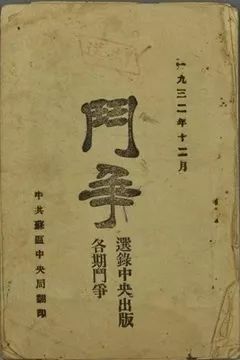 一九三二年十二月
鬥爭
選錄中央出版
各期鬥爭
中共蘇區中央局翻印